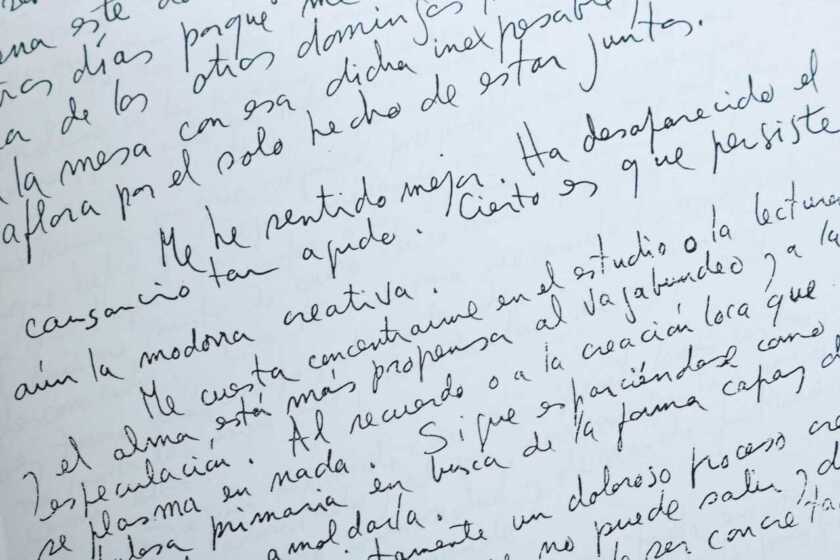 este
días porque me
de los otros domingos
la mesa con esa dicha inexpresable
aflora por el solo hecho de estar juntos.
Me he sentido mejor. Ha desaparecido el
cansancio tan agudo. Cierto es que persiste
aún la modorra creativa.
Me cuesta concentrarme en el estudio o la lectura
y el alma está más propensa al vagabundeo y a la
especulación. Al recuerdo o a la creación loca que
se plasma en nada. Sigue esparciéndose como
primaria en busca de la forma capaz
amoldarla.
un doloroso proceso
no puede salir y
ser